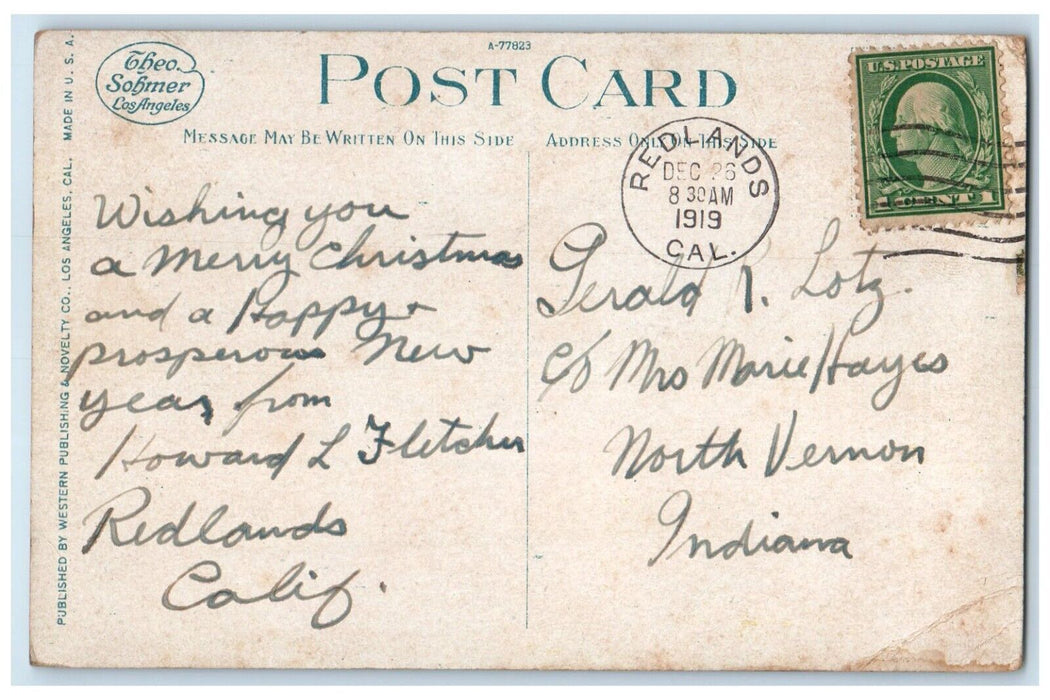 A-77823
Theo.
Sohmer
Los Angeles
POST CARD
MESSAGE MAY BE WRITTEN ON THIS SIDE
ADDRESS ONLY ON THIS SIDE
PUBLISHED BY WESTERN PUBLISHING & NOVELTY CO., LOS ANGELES, CAL. MADE IN U. S. A.
U.S. POSTAGE
1 CENT 1
REDLANDS
DEC 26
8 30 AM
1919
CAL.
Wishing you
a Merry Christmas
and a Happy +
prosperous New
year, from
Howard L Fletcher
Redlands
Calif.
Gerald R. Lotz.
c/o Mrs Marie Hayes
North Vernon
Indiana